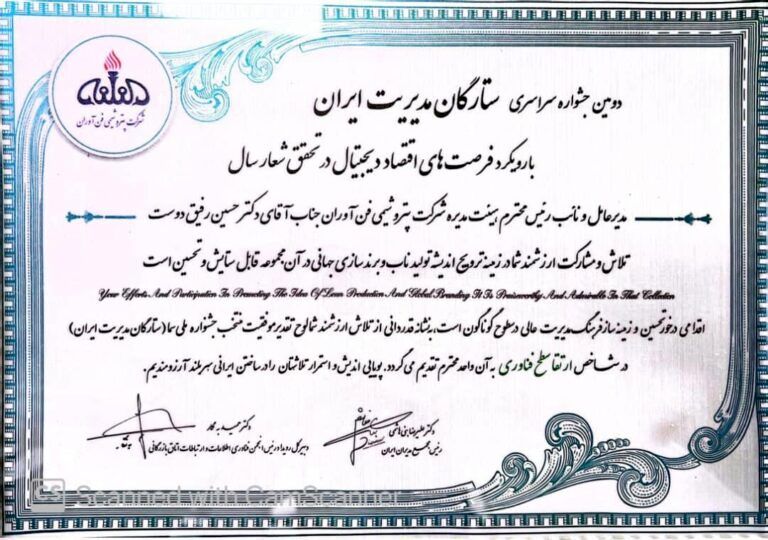 شرکت پتروشیمی فن آوران
دومین جشنواره سراسری ستارگان مدیریت ایران
با رویکرد فرصت های اقتصاد دیجیتال در تحقق شعار سال
مدیرعامل و نائب رئیس محترم هیئت مدیره شرکت پتروشیمی فن آوران جناب آقای دکتر حسین رفیق دوست
تلاش و مشارکت ارزشمند شما در زمینه ترویج اندیشه تولید ناب و برندسازی جهانی در آن مجموعه قابل ستایش و تحسین است
Your Efforts And Participation In Promoting The Idea Of Lean Production And Global Branding It Is Praiseworthy And Admirable In That Collection
اقدامی درخور تحسین و زمینه ساز فرهنگ مدیریت عالی در سطوح گوناگون است، به نشانه قدردانی از تلاش ارزشمند شما لوح تقدیر موفقیت منتخب جشنواره ملی سما (ستارگان مدیریت ایران)
در شاخص ارتقا سطح فناوری به آن واحد محترم تقدیم می گردد. پویایی اندیش و استمرار تلاشتان را در ساختن ایرانی سربلند آرزومندیم.
دکتر علیرضا بنی هاشمی
رئیس مجمع مدیران ایران
دکتر حمید به کار
دبیر کل رویداد و رئیس انجمن فناوری اطلاعات و ارتباطات اتاق بازرگانی
CS Scanned with CamScanner